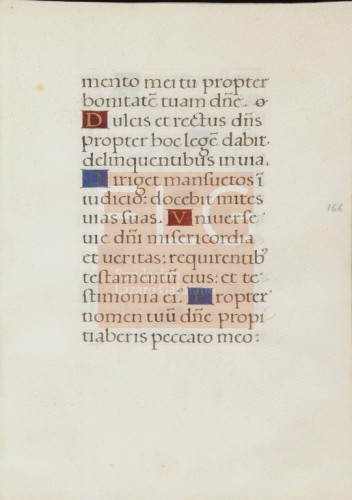 mento mei tu propter
bonitatē tuam dn̄e. o
Dulcis et rectus dn̄s
propter hoc legē dabit
delinquentibus in uia.
Diriget mansuetos ī
iudicio: docebit mites
uias suas. Vniuerse
uie dn̄i misericordia
et ueritas: requirentib᷒
testamentū eius: et te
stimonia ei᷒. Propter
nomen tuū dn̄e propi
tiaberis peccato meo:
166
FLG
Lázaro Galdiano